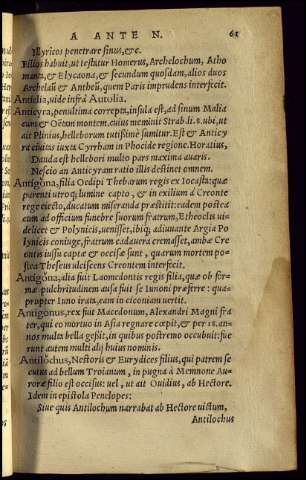 A ANTE N. 61
Illyricos penetrare sinus, &c.
filios habuit, ut testatur Homerus, Archelochum, Atho
manta, & Elycaona, & secundum quosdam, alios duos
Archelaū & Antheū, quem Paris imprudens interfecit.
Antelia, uide infrà Autolia.
Anticyra, penultima correpta, insula est, ad sinum Malia
cum & Oetam montem. cuius meminit Strab. li. 9. ubi, ut
ait Plinius, helleborum tutissimè sumitur. Est & Anticy
ra ciuitas iuxta Cyrrham in Phocide regione. Horatius,
Danda est hellebori multo pars maxima auaris.
Nescio an Anticyram ratio illis destinet omnem.
Antigona, filia Oedipi Thebarum regis ex Iocasta: quæ
parenti utroque lumine capto, & in exilium à Creonte
rege eiecto, ducatum miseranda præstitit: eadem postea
cum ad officium funebre suorum fratrum, Etheoclis ui-
delicet & Polynicis, uenisset, ibique adiuuante Argia Po
lynicis coniuge, fratrum cadauera cremasset, ambæ Cre
ontis iussu captæ & occisæ sunt, quarum mortem po-
stea Theseus ulciscens Creontem interfecit.
Antigona, alia fuit Laomedontis regis filia, quæ ob for-
mæ pulchritudinem ausa fuit se Iunoni præferre: qua-
propter Iuno irata, eam in ciconiam uertit.
Antigonus, rex fuit Macedonum, Alexandri Magni fra
ter, qui eo mortuo in Asia regnare cœpit, & per 18. an-
nos multa bella gessit, in quibus postremo occubuit: fue
runt autem multi alij huius nominis.
Antilochus, Nestoris & Eurydices filius, qui patrem se
cutus ad bellum Troianum, in pugna à Memnone Au-
roræ filio est occisus: uel, ut ait Ouidius, ab Hectore.
Idem in epistola Penelopes:
Siue quis Antilochum narrabat ab Hectore uictum,
Antilochus